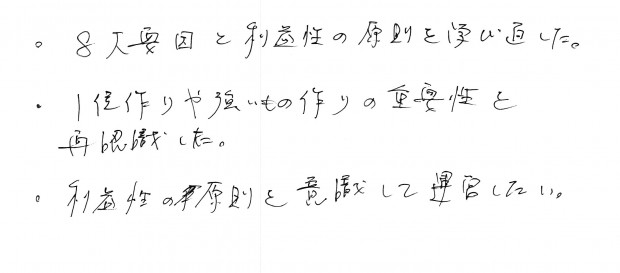 。8大要因と利益性の原則を学び直した。
・1位作りや強いもの作りの重要性を
再認識した。
・利益性の原則を意識して運営したい。